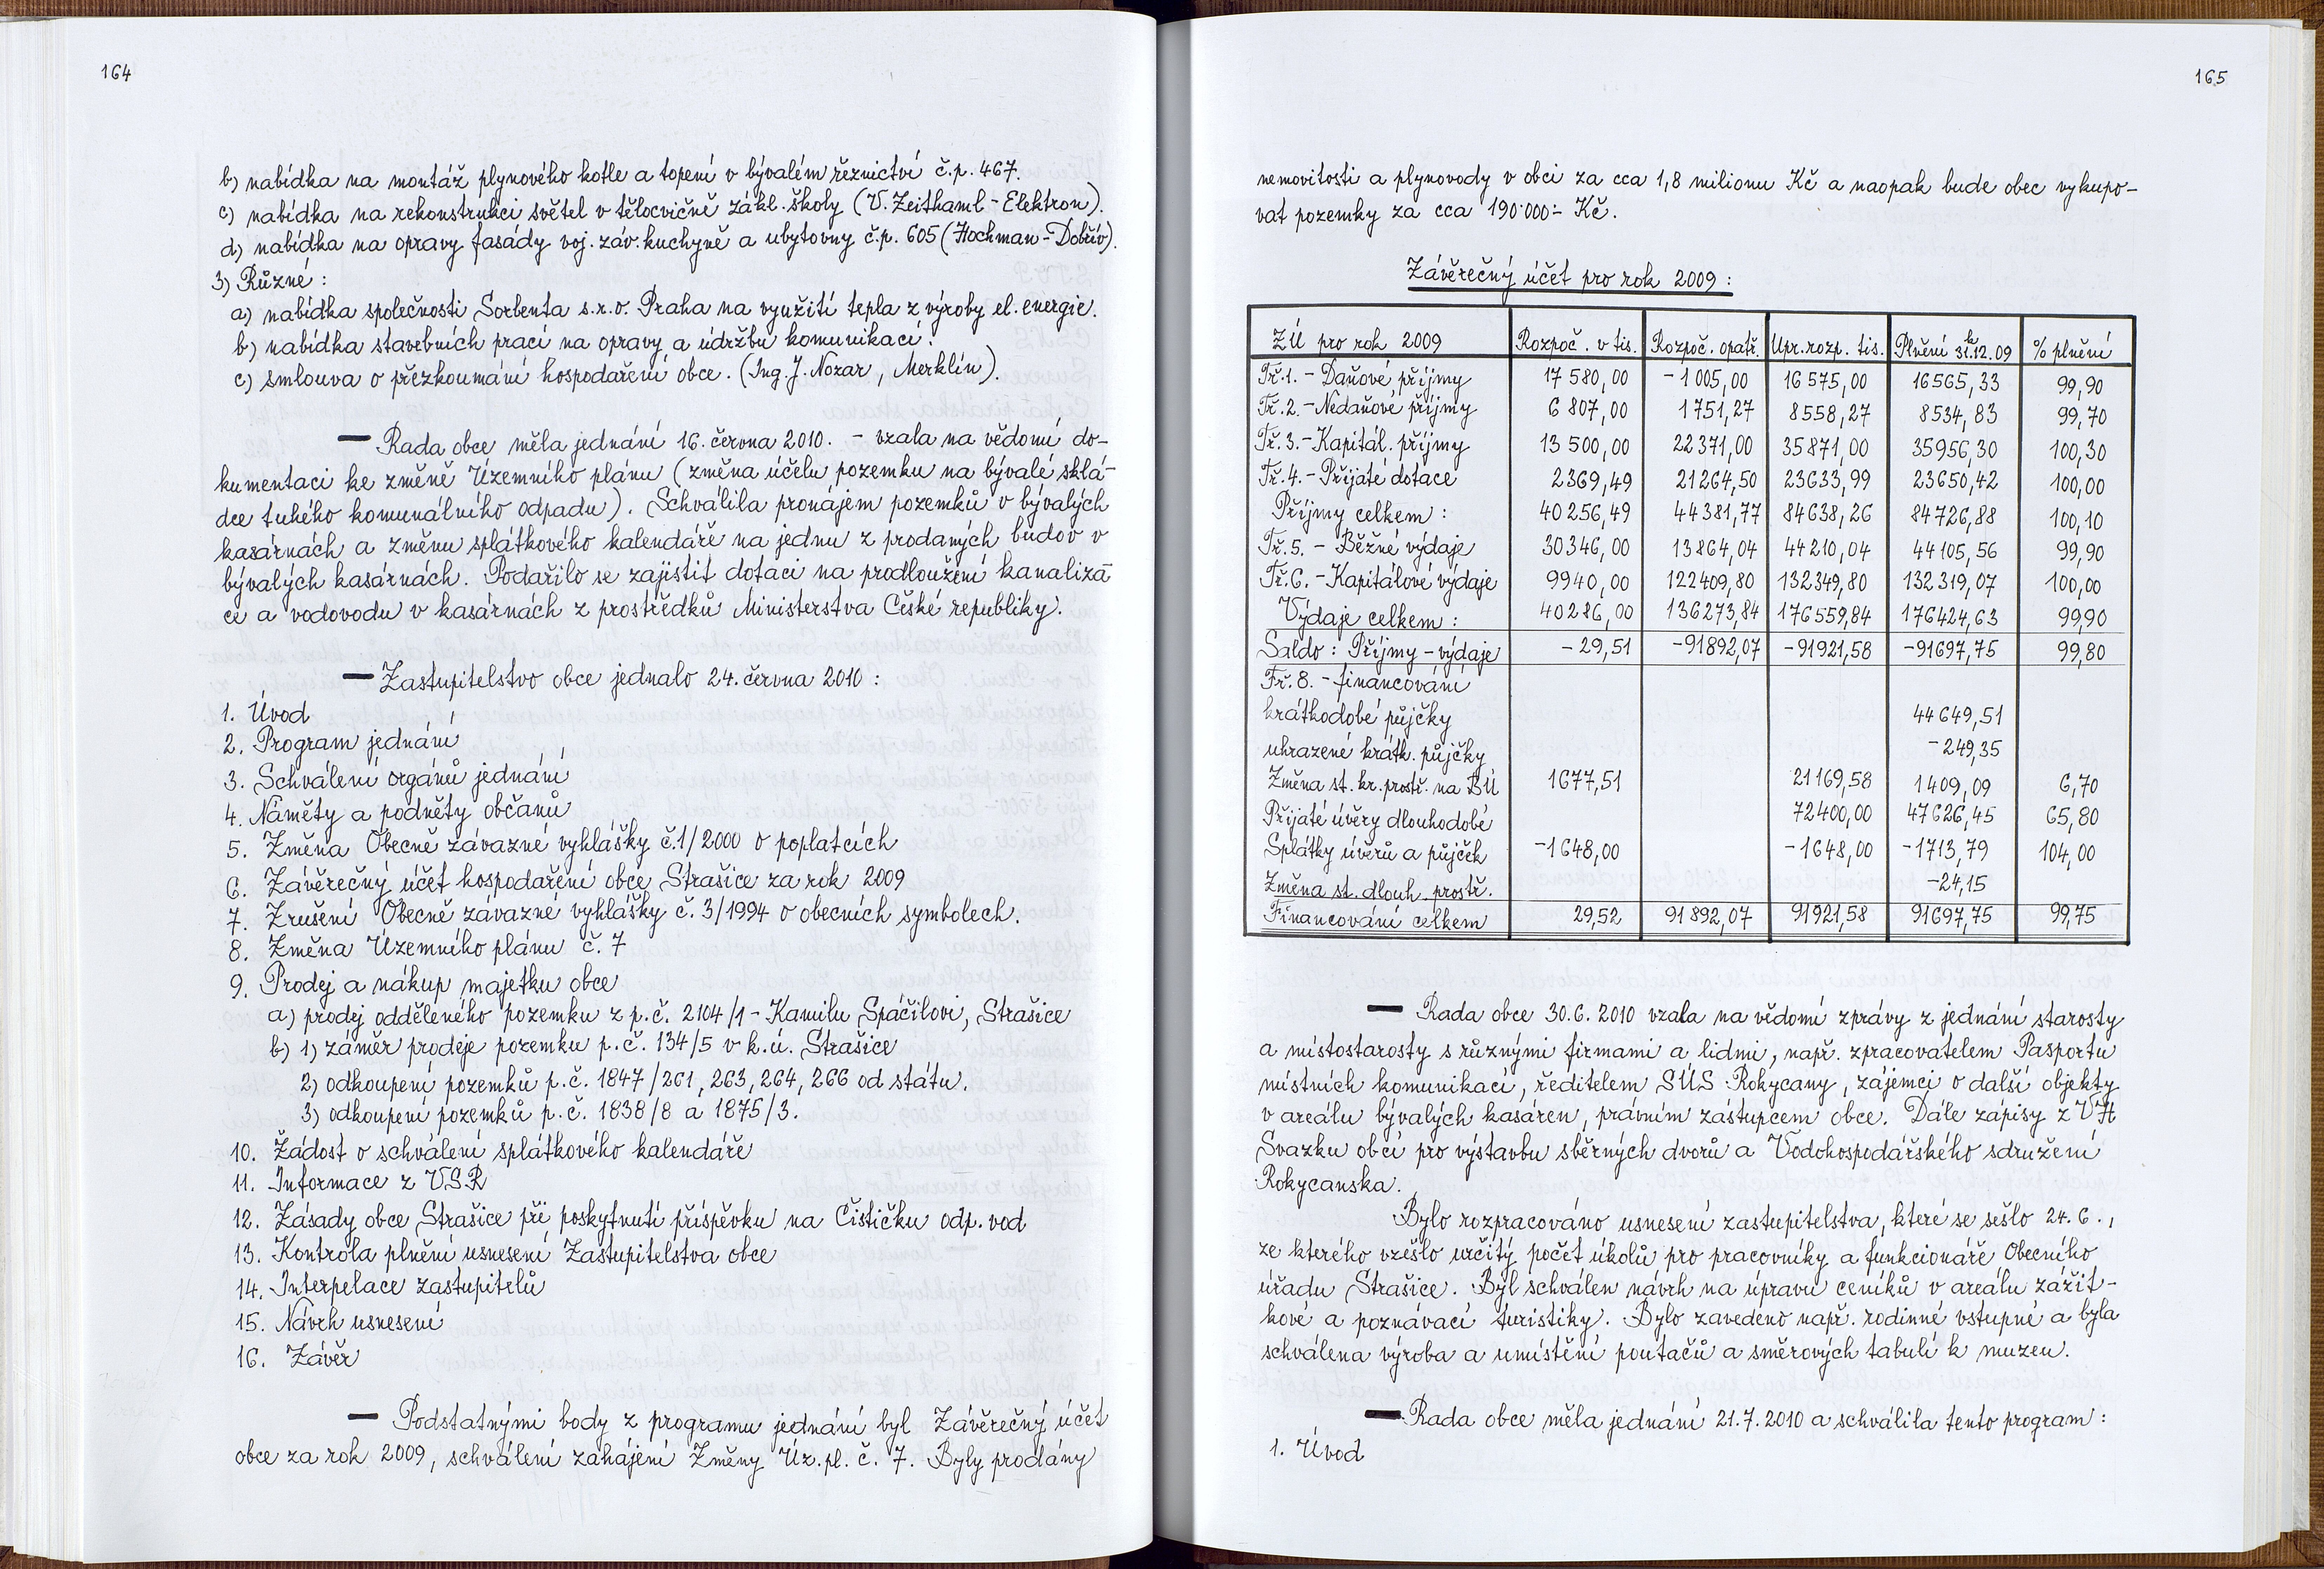 164
b) nabídka na montáž plynového kotle a topení v bývalém řeznictví č.p. 467.
c) nabídka na rekonstrukci světel v tělocvičně zákl. školy (V. Zeithaml - Elektron).
d) nabídka na opravy fasády voj. záv. kuchyně a ubytovny č.p. 605 (Hochman - Dobřív).
3) Různé :
a) nabídka společnosti Sorbenta s.r.o. Praha na využití tepla z výroby el. energie.
b) nabídka stavebních prací na opravy a údržbu komunikací.
c) smlouva o přezkoumání hospodaření obce. (Ing. J. Nozar, Merklín).
— Rada obce měla jednání 16. června 2010. - vzala na vědomí do-
kumentaci ke změně Územního plánu (změna účelu pozemku na bývalé sklá-
dce tuhého komunálního odpadu). Schválila pronájem pozemků v bývalých
kasárnách a změnu splátkového kalendáře na jednu z prodaných budov v
bývalých kasárnách. Podařilo se zajistit dotaci na prodloužení kanaliza-
ce a vodovodu v kasárnách z prostředků Ministerstva České republiky.
— Zastupitelstvo obce jednalo 24. června 2010 :
1. Úvod
2. Program jednání
3. Schválení orgánů jednání
4. Náměty a podněty občanů
5. Změna Obecně závazné vyhlášky č.1/2000 o poplatcích
6. Závěrečný účet hospodaření obce Strašice za rok 2009
7. Zrušení Obecně závazné vyhlášky č. 3/1994 o obecních symbolech.
8. Změna Územního plánu č. 7
9. Prodej a nákup majetku obce
a) prodej odděleného pozemku z p.č. 2104/1 - Kamilu Spáčilovi, Strašice
b) 1) záměr prodeje pozemku p.č. 134/5 v k.ú. Strašice
2) odkoupení pozemků p.č. 1847/261, 263, 264, 266 od státu.
3) odkoupení pozemků p.č. 1838/8 a 1875/3.
10. Žádost o schválení splátkového kalendáře
11. Informace z VSR
12. Zásady obce Strašice při poskytnutí příspěvku na Čističku odp. vod
13. Kontrola plnění usnesení Zastupitelstva obce
14. Interpelace zastupitelů
15. Návrh usnesení
16. Závěr
— Podstatnými body z programu jednání byl Závěrečný účet
obce za rok 2009, schválení zahájení Změny Úz. pl. č. 7. Byly prodány
165
nemovitosti a plynovody v obci za cca 1,8 milionu Kč a naopak bude obec vykupo-
vat pozemky za cca 190.000.- Kč.
Závěrečný účet pro rok 2009 :
ZÚ pro rok 2009 Rozpoč. v tis. Rozpoč. opatř. Upr. rozp. tis. Plnění k 31.12.09 % plnění
Tř. 1. - Daňové příjmy 17 580,00 -1 005,00 16 575,00 16565,33 99,90
Tř. 2. - Nedaňové příjmy 6 807,00 1751,27 8558,27 8534,83 99,70
Tř. 3. - Kapitál. příjmy 13 500,00 22371,00 35871,00 35956,30 100,30
Tř. 4. - Přijaté dotace 2369,49 21264,50 23633,99 23650,42 100,00
Příjmy celkem : 40256,49 44381,77 84638,26 84726,88 100,10
Tř. 5. - Běžné výdaje 30346,00 13864,04 44210,04 44105,56 99,90
Tř. 6. - Kapitálové výdaje 9940,00 122409,80 132349,80 132319,07 100,00
Výdaje celkem : 40286,00 136273,84 176559,84 176424,63 99,90
Saldo : Příjmy - výdaje -29,51 -91892,07 -91921,58 -91697,75 99,80
Tř. 8. - financování
krátkodobé půjčky 44649,51
uhrazené krátk. půjčky -249,35
Změna st. kr. prostř. na BÚ 1677,51 21169,58 1409,09 6,70
Přijaté úvěry dlouhodobé 72400,00 47626,45 65,80
Splátky úvěrů a půjček -1648,00 -1648,00 -1713,79 104,00
Změna st. dlouh. prostř. -24,15
Financování celkem 29,52 91892,07 91921,58 91697,75 99,75
— Rada obce 30.6. 2010 vzala na vědomí zprávy z jednání starosty
a místostarosty s různými firmami a lidmi, např. zpracovatelem Pasportu
místních komunikací, ředitelem SÚS Rokycany, zájemci o další objekty
v areálu bývalých kasáren, právním zástupcem obce. Dále zápisy z VH
Svazku obcí pro výstavbu sběrných dvorů a Vodohospodářského sdružení
Rokycanska.
Bylo rozpracováno usnesení zastupitelstva, které se sešlo 24.6.,
ze kterého vzešlo určitý počet úkolů pro pracovníky a funkcionáře Obecního
úřadu Strašice. Byl schválen návrh na úpravu ceníků v areálu zážit-
kové a poznávací turistiky. Bylo zavedeno např. rodinné vstupné a byla
schválena výroba a umístění poutačů a směrových tabulí k muzeu.
— Rada obce měla jednání 21.7.2010 a schválila tento program :
1. Úvod